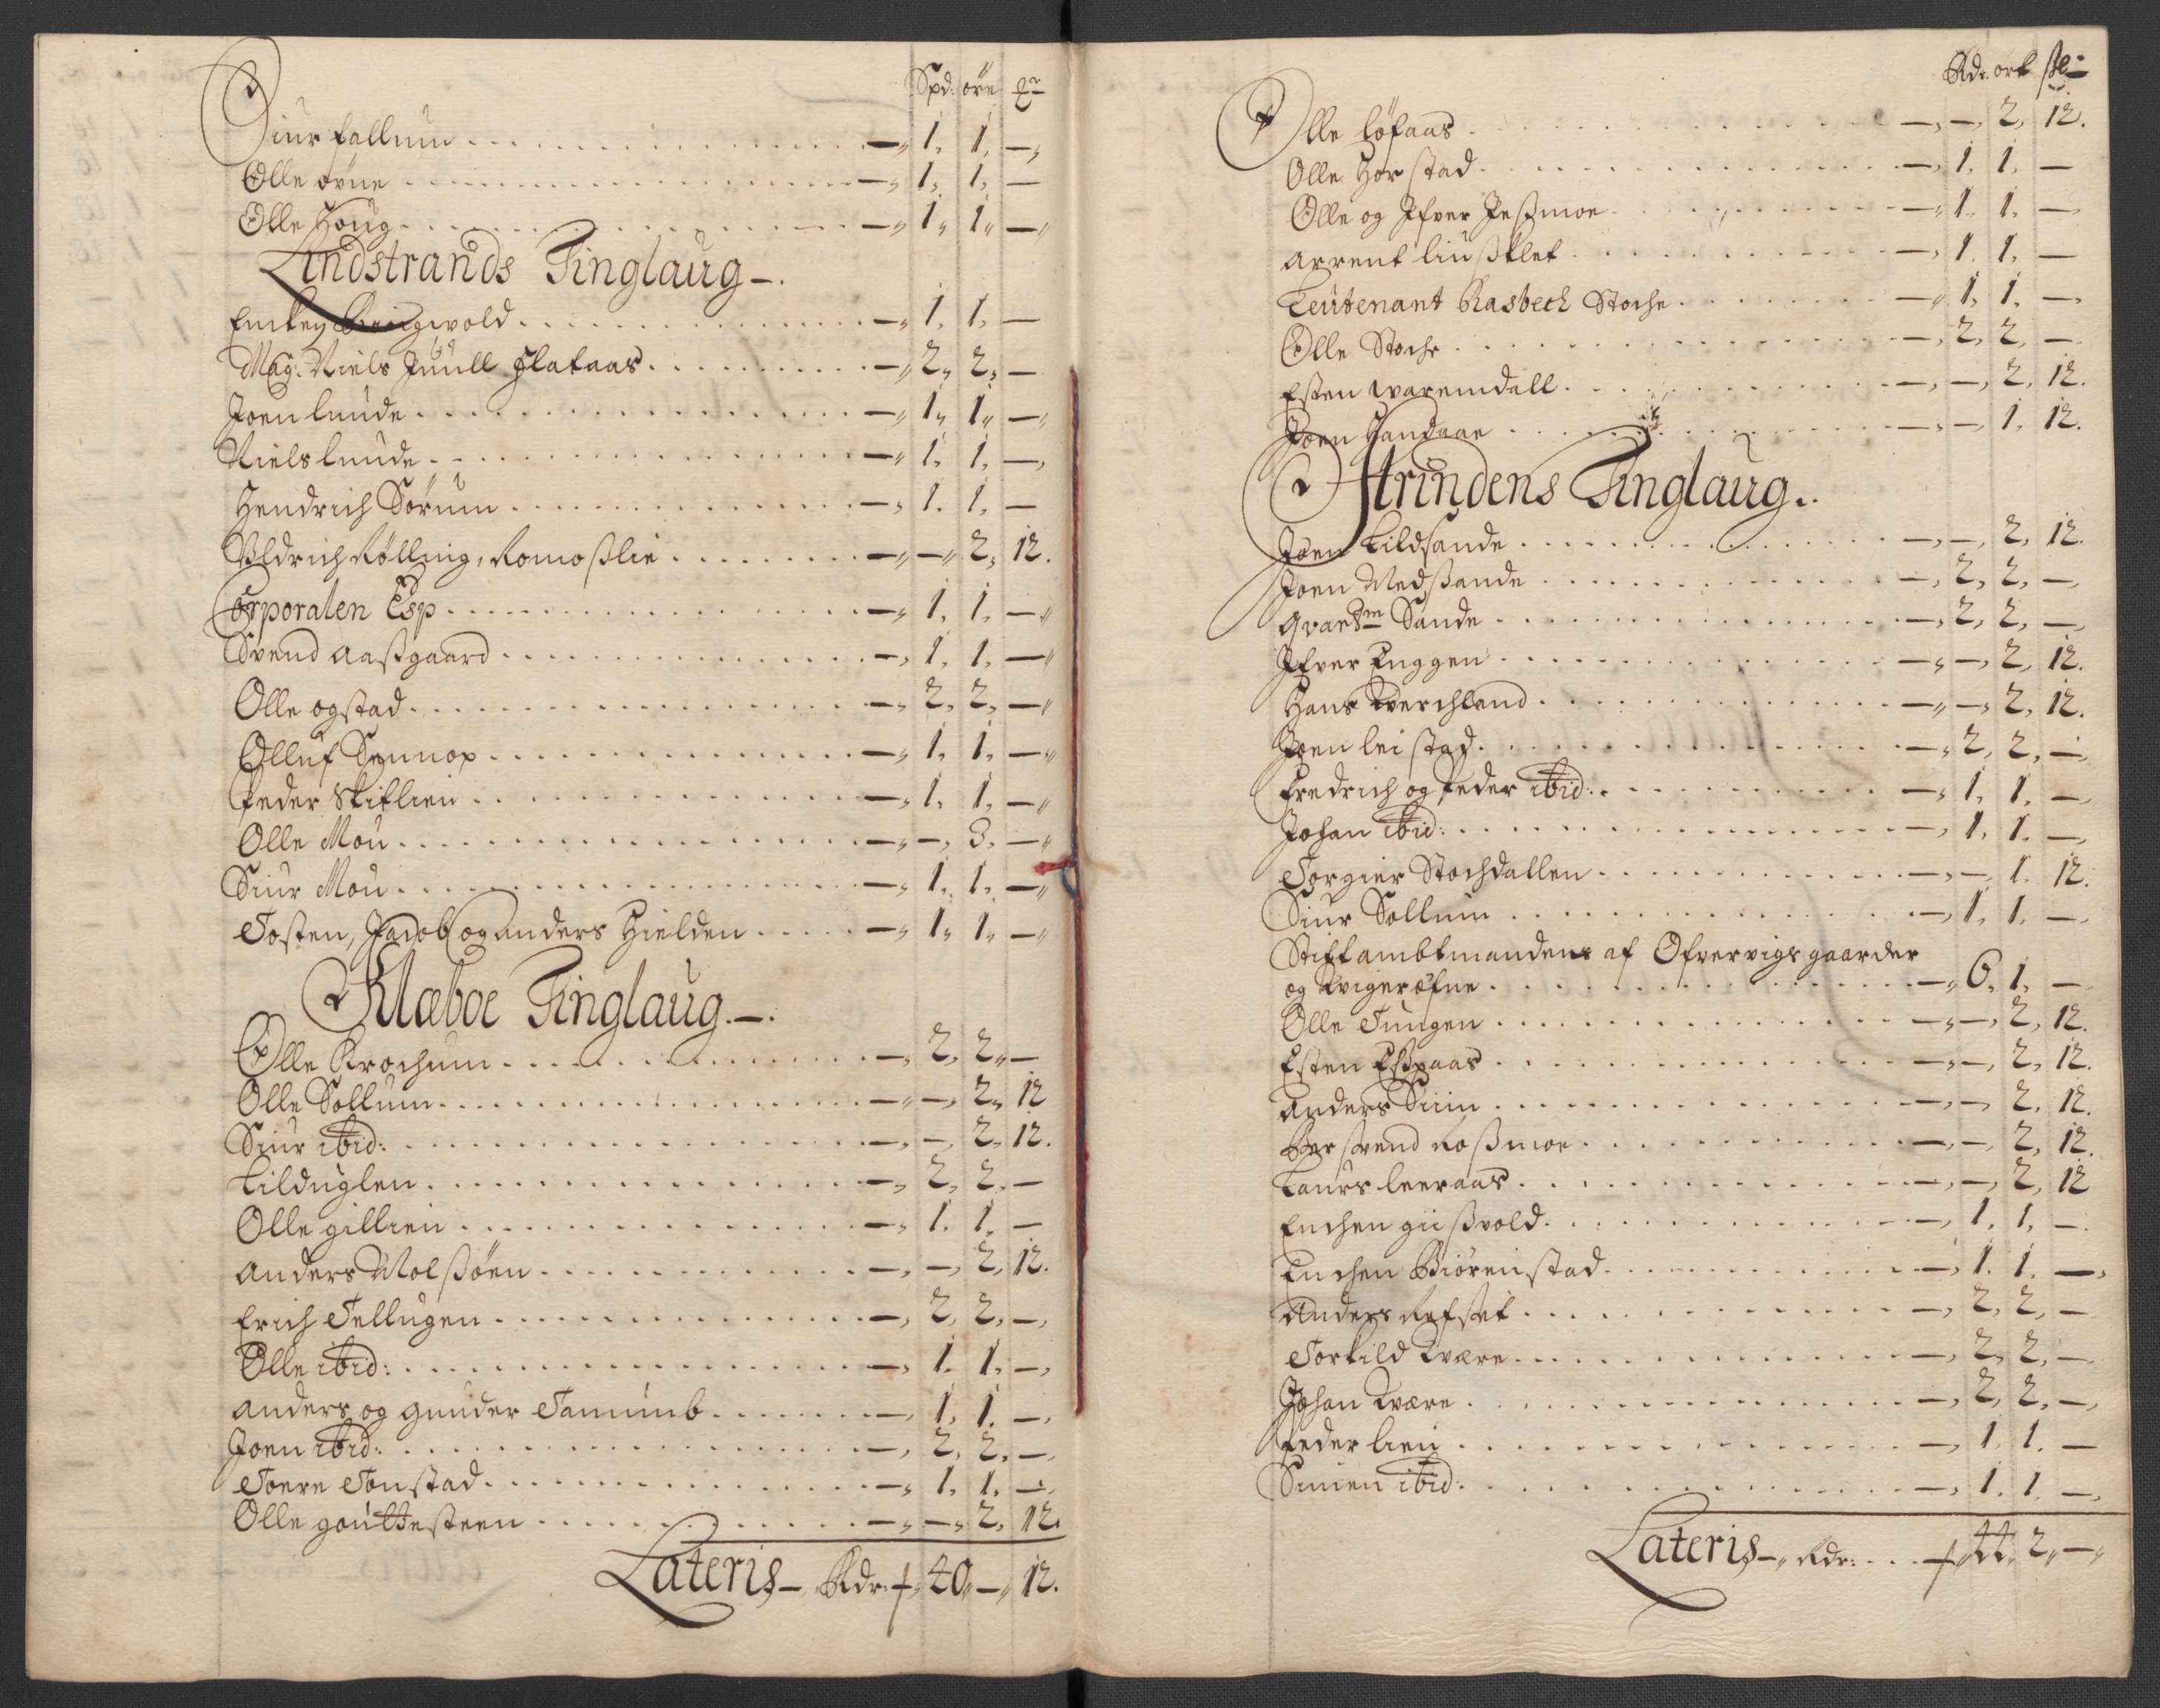 Spd: öre qr
Siur fallum - 1. 1. -
Olle övne - 1. 1. -
Olle Houg - 1. 1. -
Lindstrands Tinglaug
Enckey Ringwold - 1. 1. -
Mag. Niels Juull flataas - 2. 2. -
Joen lunde - 1. 1. -
Niels lunde - 1. 1. -
Hendrich Sörum - 1. 1. -
Uldrich Rölling, Romoßlie - - 2. 12.
Corporalen Esp - 1. 1. -
Svend aaßgaard - 1. 1. -
Olle ogstad - 2. 2. -
Olluf Synnop - 1. 1. -
Peder Skiflien - 1. 1. -
Olle Mou - - 3. -
Siur Mou - 1. 1. -
Tosten, Jacob og anders Hielden - 1. 1. -
Klæboe Tinglaug
Olle Krochum - 2. 2. -
Olle Sollum - - 2. 12
Siur ibid: - - 2. 12.
Lilduglen - 2. 2. -
Olle gillien - 1. 1. -
anders Nolßöen - - 2. 12.
Erich Tellugen - 2. 2. -
Olle ibid: - 1. 1. -
anders og gunder Tanumb - 1. 1. -
Joen ibid: - 2. 2. -
Toere Tonstad - 1. 1. -
Olle gouttesteen - - 2. 12.
Lateris - Rdr. 40 - 12.
Rdr ort sk
Olle löfaas - - 2. 12.
Olle Horstad - 1. 1. -
Olle og Ifver Jeßmoe - 1. 1. -
arrent liußklet - 1. 1. -
Leutenant Rasbech Stoche - 1. 1. -
Olle Stoche - 2. 2. -
Esten waremdall - - 2. 12.
Joen Handaae - - 1. 12.
Strindens Tinglaug
Joen Lildsande - - 2. 12.
Joen Nedßande - 2. 2. -
Qvartm Sande - 2. 2. -
Ifver Euggen - - 2. 12.
Hans Tverchland - - 2. 12.
Joen leistad - 2. 2. -
Fredrich og Peder ibid: - 1. 1. -
Johan ibid: - 1. 1. -
Torgier Stochdallen - - 1. 12.
Siur Sollum - 1. 1. -
Stiftambtmandens af Ofvervigs gaarder
og Kvigeröfne - 6. 1. -
Olle Tungen - - 2. 12.
Esten Eßpaas - - 2. 12.
anders Siim - - 2. 12.
Per svend roßmoe - - 2. 12.
Laurs leeraas - - 2. 12
Enchen giißvold - 1. 1. -
Enchen Biörenstad - 1. 1. -
Anders Refset - 2. 2. -
Torkild Tvære - 2. 2. -
Johan Tvære - 2. 2. -
Peder lien - 1. 1. -
Simen ibid: - 1. 1. -
Lateris - Rdr: 44. 2. -